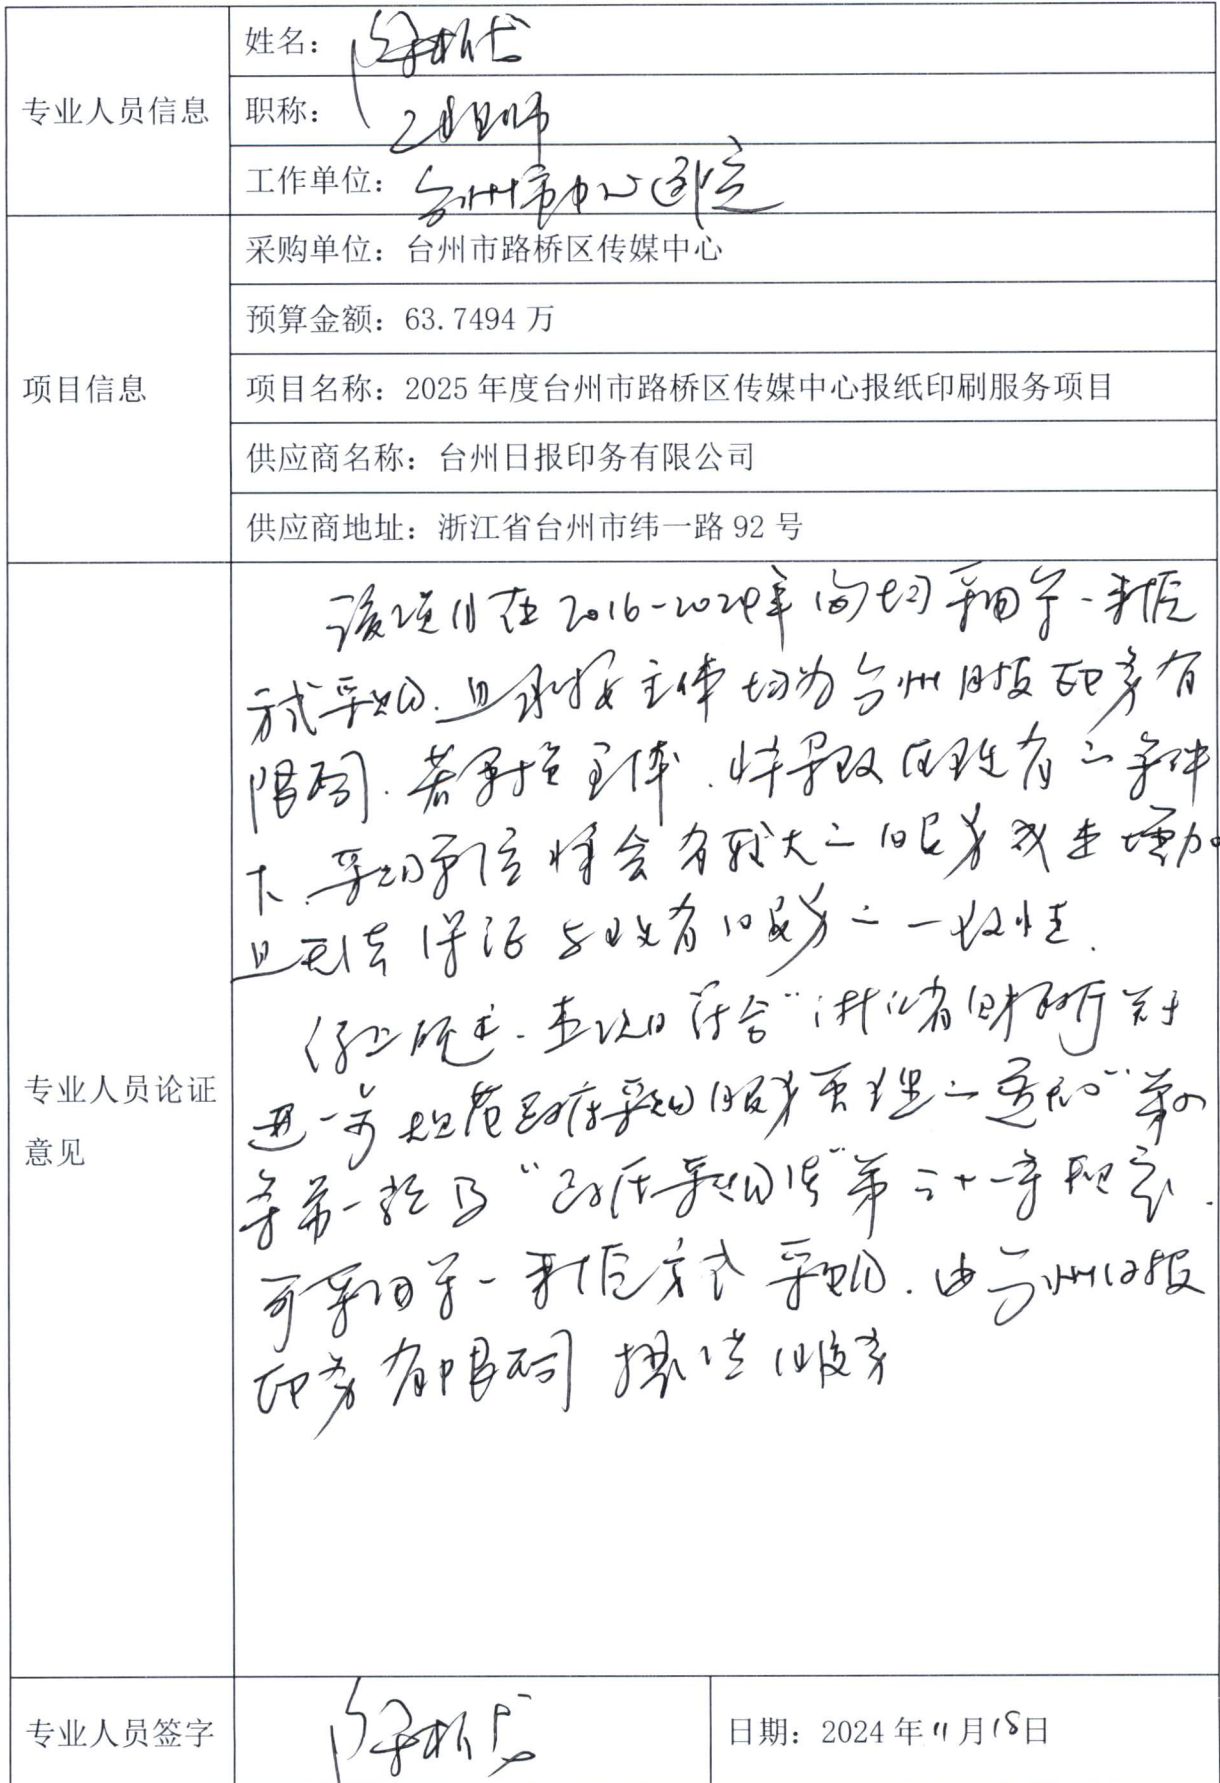 专业人员信息
姓名：陈
职称：工程师
工作单位：台州市中心医院
项目信息
采购单位：台州市路桥区传媒中心
预算金额：63.7494 万
项目名称：2025 年度台州市路桥区传媒中心报纸印刷服务项目
供应商名称：台州日报印务有限公司
供应商地址：浙江省台州市纬一路 92 号
专业人员论证
意见
该项目在2016-2024年间均采用单一来源
方式采购.且承接主体均为台州日报印务有
限公司.若更换主体.将导致在现有的条件
下.采购单位将会有较大的服务成本增加.
且无法保证与现有服务的一致性.
综上所述.本项目符合"浙江省财政厅关于
进一步规范政府采购服务管理的通知"第四
条第一款及"政府采购法"第三十一条规定.
可采用单一来源方式采购.由台州日报
印务有限公司提供服务
专业人员签字
陈
日期：2024 年 11 月 18 日